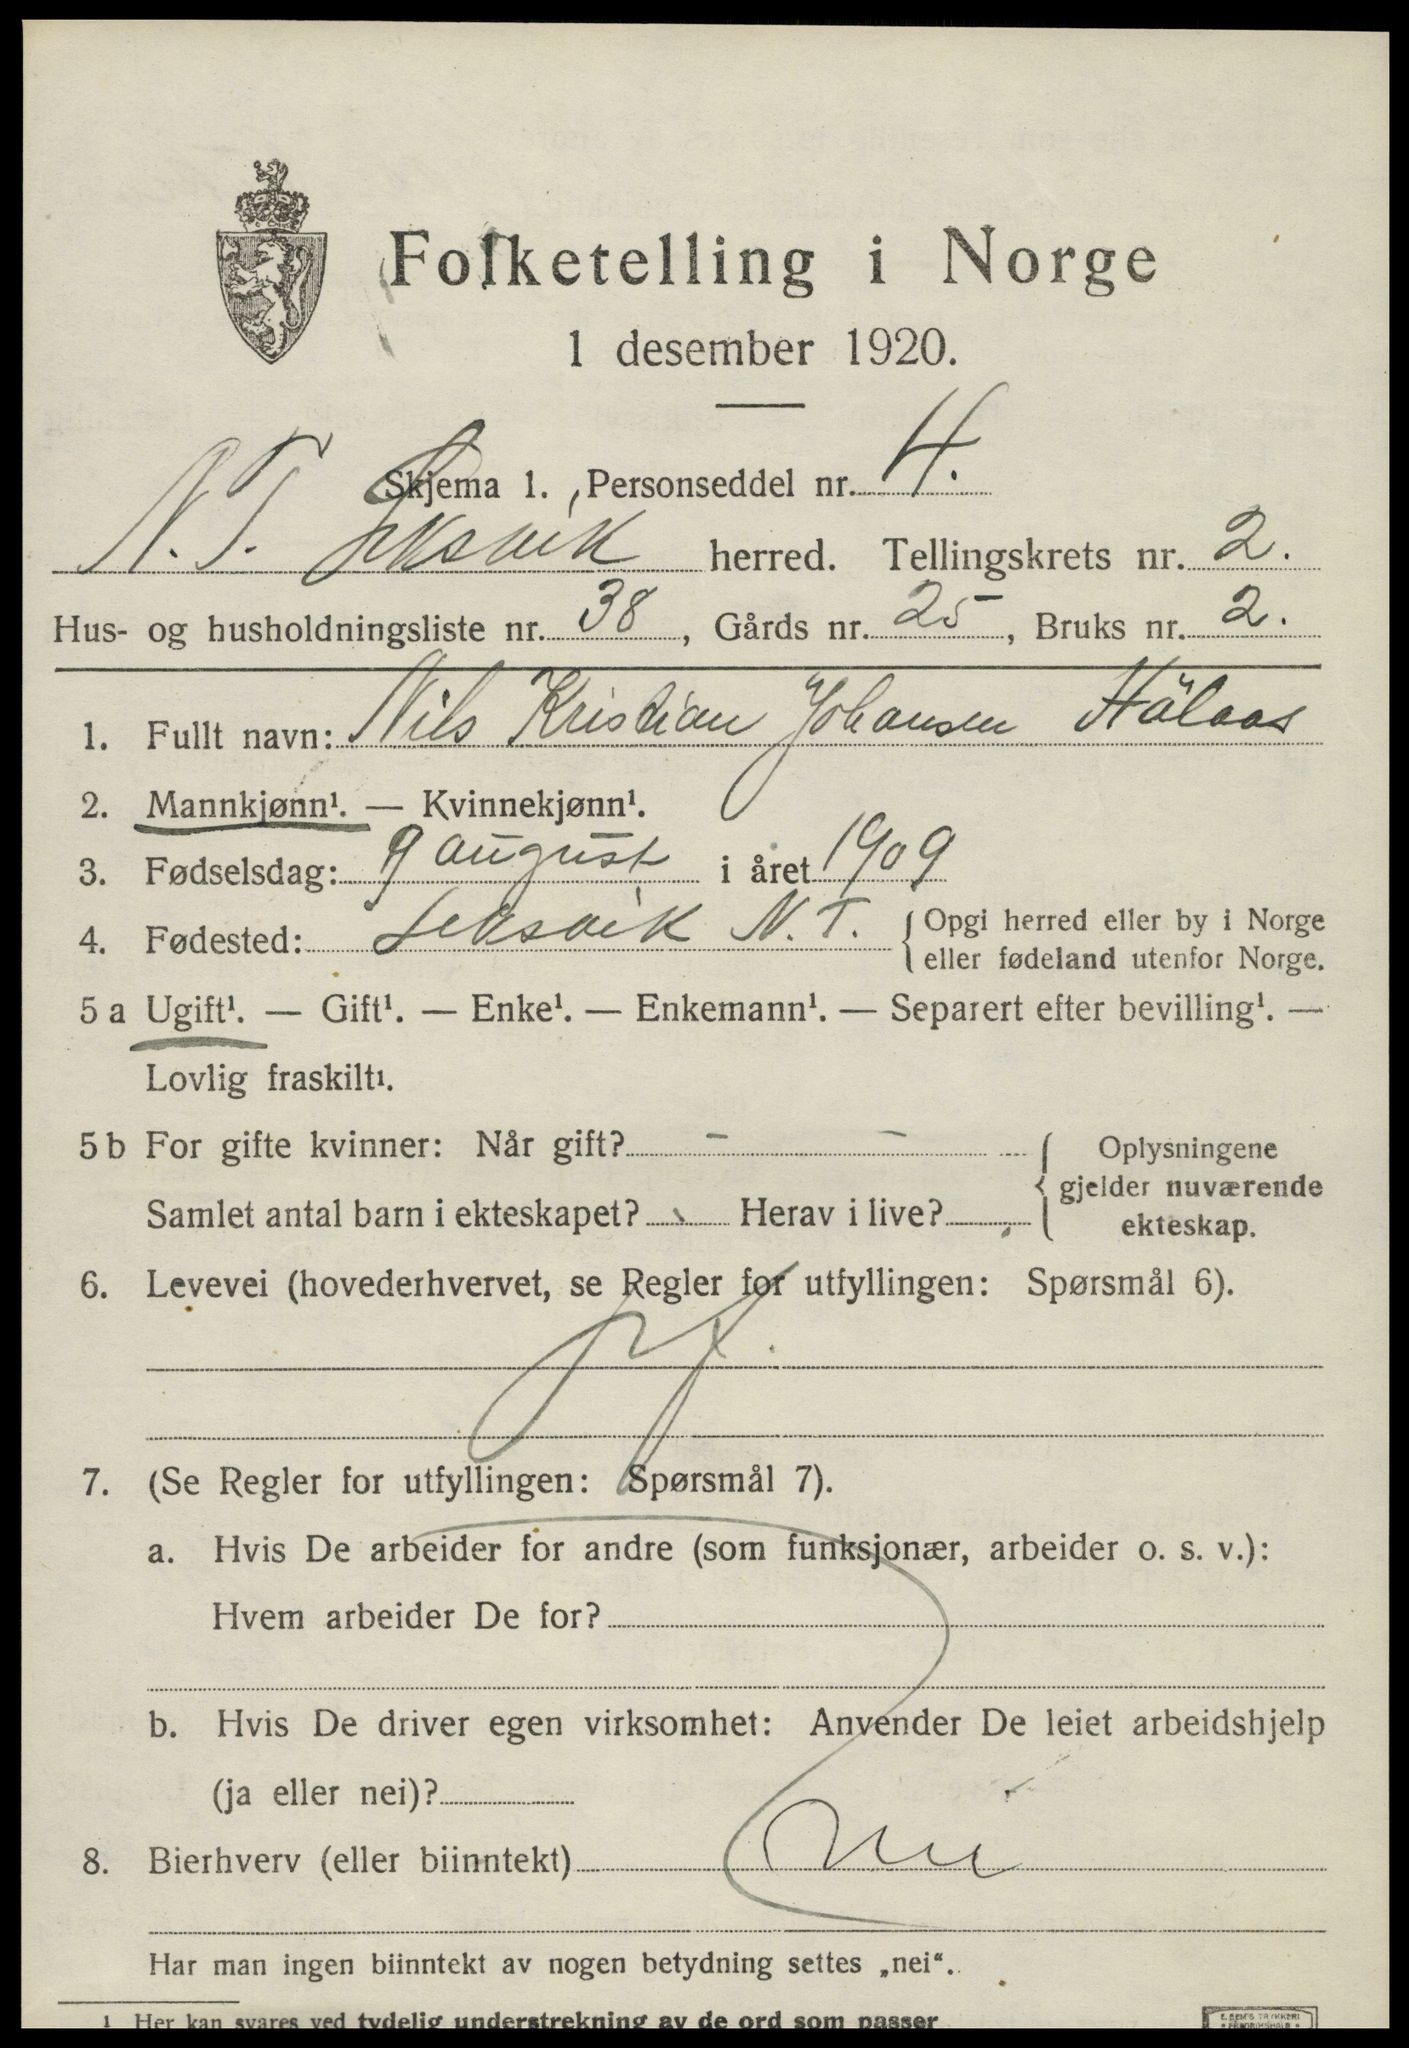 Folketelling i Norge
1 desember 1920.
Skjema 1. Personseddel nr. 4.
N. T. Leksvik herred. Tellingskrets nr. 2.
Hus- og husholdningsliste nr. 38, Gårds nr. 25, Bruks nr. 2.
1. Fullt navn: Nils Kristian Johansen Hålaas
2. Mannkjønn¹. — Kvinnekjønn¹.
3. Fødselsdag: 9 august i året 1909
4. Fødested: Leksvik N. T. { Opgi herred eller by i Norge
eller fødeland utenfor Norge.
5 a Ugift¹. — Gift¹. — Enke¹. — Enkemann¹. — Separert efter bevilling¹. —
Lovlig fraskilt¹.
5 b For gifte kvinner: Når gift? – –
Samlet antal barn i ekteskapet? Herav i live?
{ Oplysningene
gjelder nuværende
ekteskap.
6. Levevei (hovederhvervet, se Regler for utfyllingen: Spørsmål 6).
7. (Se Regler for utfyllingen: Spørsmål 7).
a. Hvis De arbeider for andre (som funksjonær, arbeider o. s. v.):
Hvem arbeider De for?
b. Hvis De driver egen virksomhet: Anvender De leiet arbeidshjelp
(ja eller nei)?
8. Bierhverv (eller biinntekt) nei
Har man ingen biinntekt av nogen betydning settes „nei“.
1 Her kan svares ved tydelig understrekning av de ord som passer